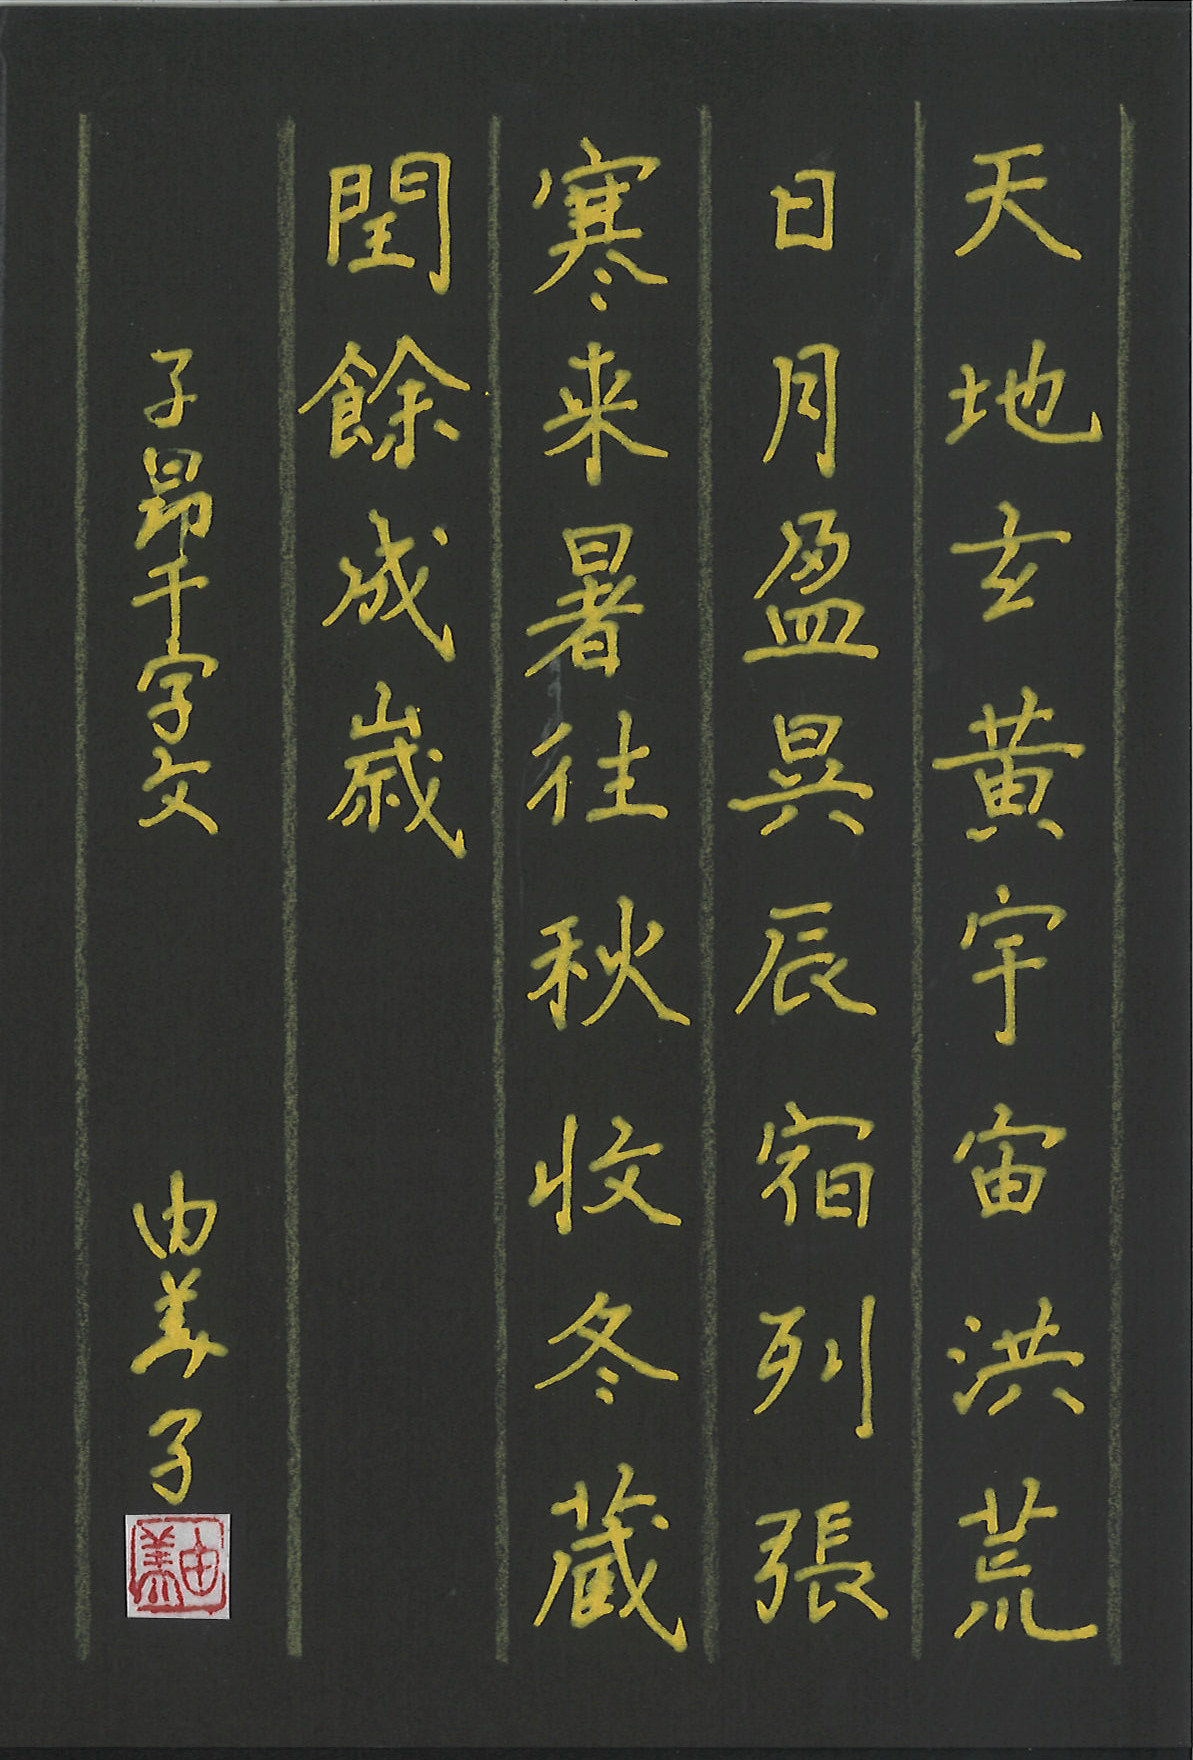 天地玄黄宇宙洪荒
日月盈昃辰宿列張
寒来暑往秋收冬蔵
閏餘成歳
子昂千字文
由美子
由美